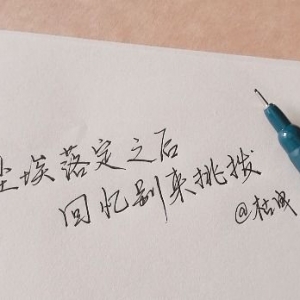 尘埃落定之后
回忆别来挑拨
@枯城